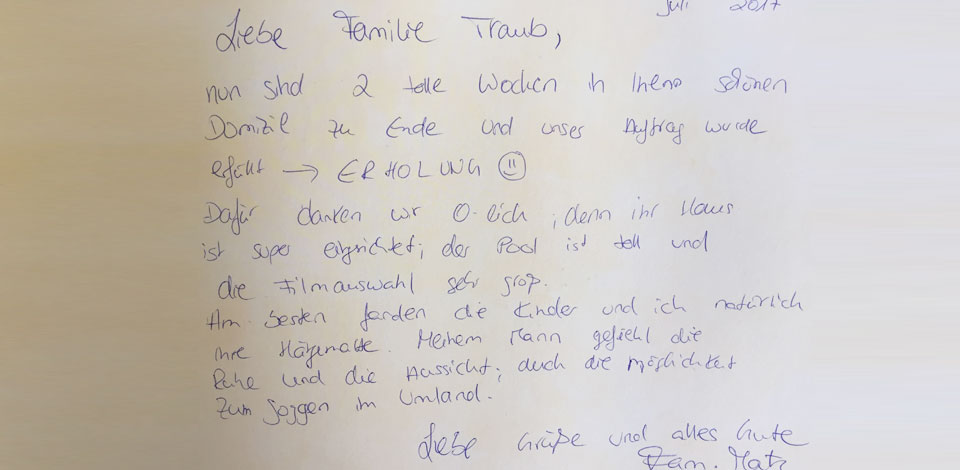 Juli 2017
Liebe Familie Traub,
nun sind 2 tolle Wochen in Ihrem schönen
Domizil zu Ende und unser Auftrag wurde
erfüllt → ERHOLUNG ☺
Dafür danken wir O-lich, denn ihr Haus
ist super eingerichtet, der Pool ist toll und
die Filmauswahl sehr groß.
Am besten fanden die Kinder und ich natürlich
Ihre Hängematte. Meinem Mann gefiehl die
Ruhe und die Aussicht, auch die Möglichkeit
zum Joggen im Umland.
Liebe Grüße und alles Gute
Fam.